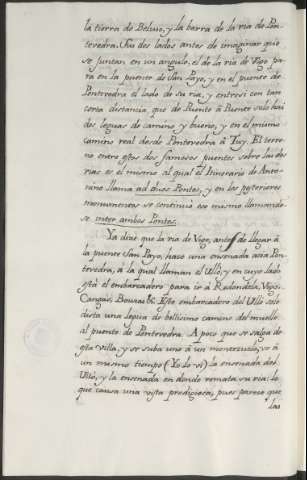 la tierra de Beluso, y la barra de la ria de Pon-
tevedra. Sus dos lados antes de imaginar que
se juntan en un angulo, el de la ria de Vigo pa-
ra en la puente de San Payo, y en el puente de
Pontevedra el lado de su ria, y entresi con tan
corta distancia, que de Puente à Puente solo hai
dos leguas de camino y bueno, y en el mismo
camino real desde Pontevedra à Tuy. El terre-
no entre estos dos famosos puentes sobre las dos
rias es el mismo al qual el Itinerario de Anto-
nino llama ad duos Pontes, y en los posteriores
monumentos se continuò eso mismo llamando-
se inter ambos Pontes.
Ya dixe que la ria de Vigo, antes de llegar à
la puente San Payo, hace una ensenada acia Pon-
tevedra, à la qual llaman el Ullò, y en cuyo lado
està el embarcadero para ir à Redondela, Vigo,
Cangas, Bouzas &c. Este embarcadero del Ullò solo
dista una legua de bellisimo camino del muelle
al puente de Pontevedra. A poco que se salga de
esta villa, y se suba uno à un montezuelo, ve à
un mismo tiempo (Yo lo vi) la ensenada del
Ullò, y la ensenada en donde remata su ria: lo
que causa una vista prodigiosa; pues parece que
las